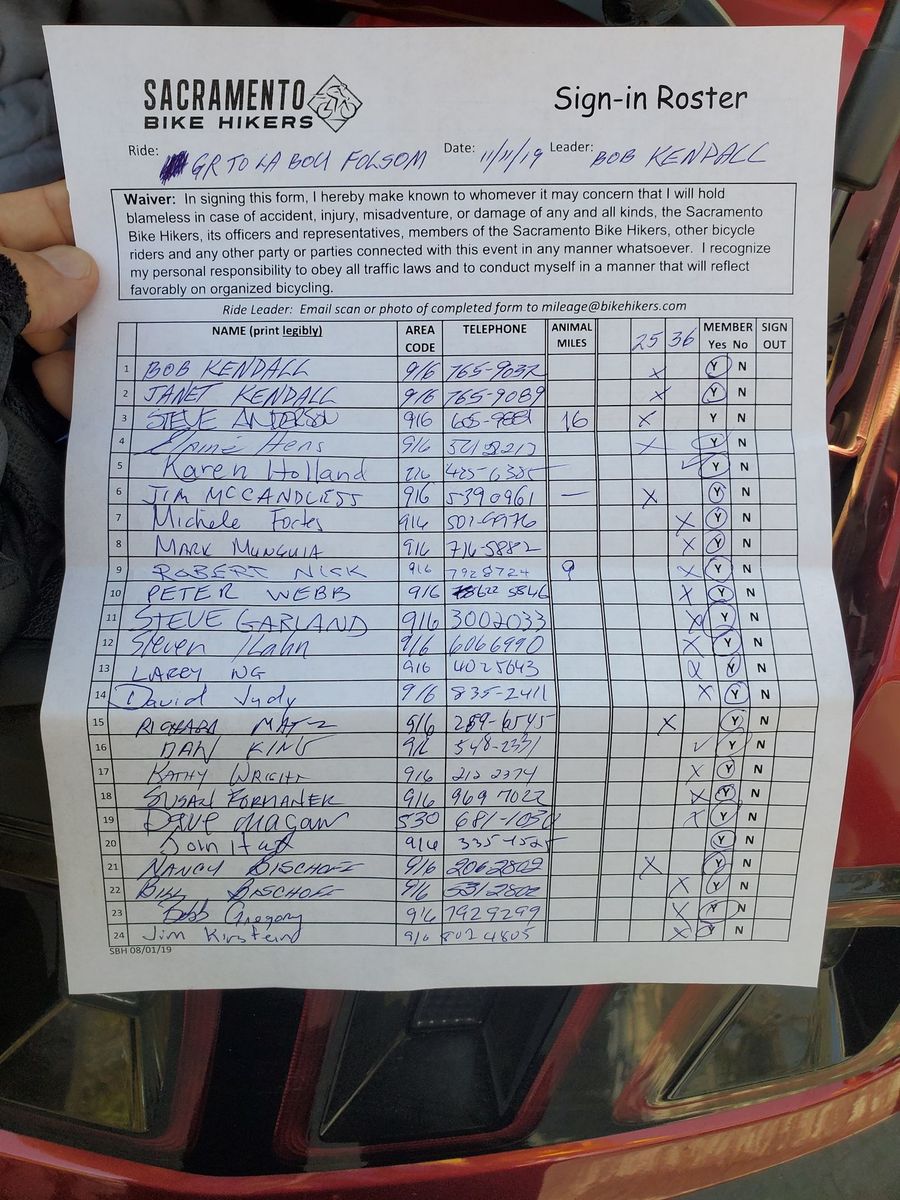 SACRAMENTO
BIKE HIKERS
Sign-in Roster
Ride: GR TO LA BOU FOLSOM Date: 11/11/19 Leader: BOB KENDALL
Waiver: In signing this form, I hereby make known to whomever it may concern that I will hold
blameless in case of accident, injury, misadventure, or damage of any and all kinds, the Sacramento
Bike Hikers, its officers and representatives, members of the Sacramento Bike Hikers, other bicycle
riders and any other party or parties connected with this event in any manner whatsoever. I recognize
my personal responsibility to obey all traffic laws and to conduct myself in a manner that will reflect
favorably on organized bicycling.
Ride Leader: Email scan or photo of completed form to mileage@bikehikers.com
NAME (print legibly) AREA CODE TELEPHONE ANIMAL MILES 25 36 MEMBER Yes No SIGN OUT
1 BOB KENDALL 916 765-9037 X Y N
2 JANET KENDALL 916 765-9089 X Y N
3 STEVE ANDERSON 916 605-9881 16 X Y N
4 Hens 916 X Y N
5 Karen Holland 916 425-6385 — ✓ Y N
6 JIM MCCANDLESS 916 5390961 — X Y N
7 Michele Fortes 916 X Y N
8 MARK MUNGUIA 916 716-5882 X Y N
9 ROBERT NICK 916 7928724 9 X Y N
10 PETER WEBB 916 622 5846 X Y N
11 STEVE GARLAND 916 3002033 X Y N
12 Steven 916 6066990 X Y N
13 LARRY NG 916 4025643 X Y N
14 David Judy 916 835-2411 X Y N
15 RICHARD MATZ 916 289-6545 X Y N
16 DAN KING 916 548-2331 ✓ Y N
17 KATHY WRIGHT 916 212 2374 X Y N
18 SUSAN FORMANEK 916 969 7022 X Y N
19 Dave Macaw 530 681-1030 X Y N
20 916 335-4525 Y N
21 NANCY BISCHOFF 916 2062802 X Y N
22 BILL BISCHOFF 916 X Y N
23 Gregory 916 7929299 X Y N
24 Jim Kirstein 916 802 4805 X Y N
SBH 08/01/19